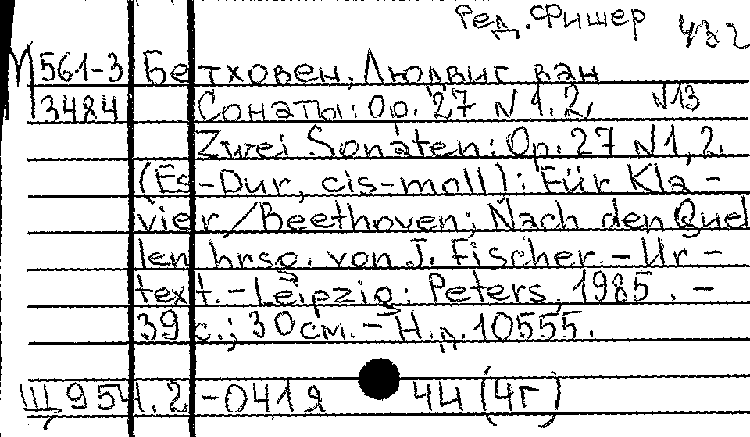 Ред. Фишер 432
М 561-3 Бетховен, Людвиг ван
3484 Сонаты: Op. 27 N 1, 2. N13
Zwei Sonaten: Op. 27 N 1, 2.
(Es-Dur, cis-moll): Für Kla-
vier/Beethoven; Nach den Quel
len hrsg. von J. Fischer - Ur-
text. - Leipzig: Peters, 1985. -
39 с.; 30 см. - Н.д. 10555.
Щ 954.2-041 я 44 (4Г)